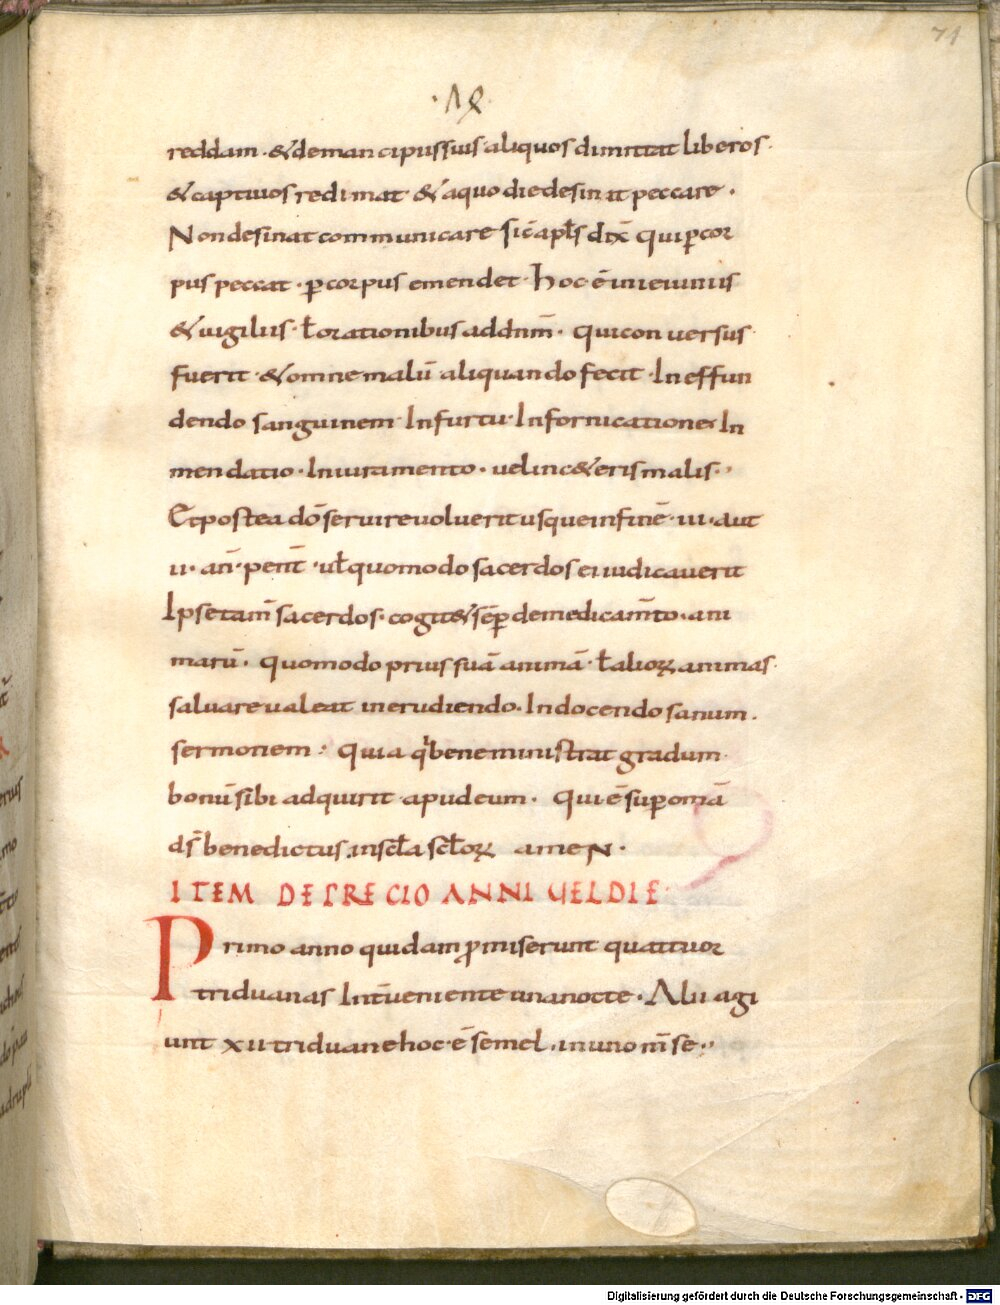 71
reddam · & de mancipus suis aliquos dimittat liberos ·
& captiuos redimat · & a quo die desinat peccare ·
Non desinat communicare sic̄ apl̄s dix̄ qui ꝑ cor
pus peccat · ꝑ corpus emendet · hoc ē in ieiuniis
& uigiliis · ł orationibus ad dn̄m̄ · qui conuersus
fuerit · & omne malū aliquando fecit · In effun
dendo sanguinem · In furtu · In fornicatione · In
mendatio · In iuramento · uel in c&eris malis ·
Et postea dō seruire uoluerit usque in finē · iii · aut
ii · an̄ · penit̄ · ul̄ quomodo sacerdos ei iudicauerit
Ipse tam̄ sacerdos · cogit& sēꝑ de medicam̄to · ani
marū · quomodo prius suā animā · ł alioꝝ animas ·
saluare ualeat in erudiendo · In docendo sanum ·
sermonem · quia q̇ bene ministrat gradum ·
bonū sibi adquirit apud eum · qui ē suꝑ om̄a
ds̄ benedictus in scl̄a scl̄oꝝ amen ·
ITEM DE PRECIO ANNI UEL DIE ·
Primo anno quidam ꝓmiserunt quattuor
triduanas Int̄ueniente una nocte · Alii agi
unt xii triduane hoc · ē semel · in uno m̄se ·
Digitalisierung gefördert durch die Deutsche Forschungsgemeinschaft - DFG